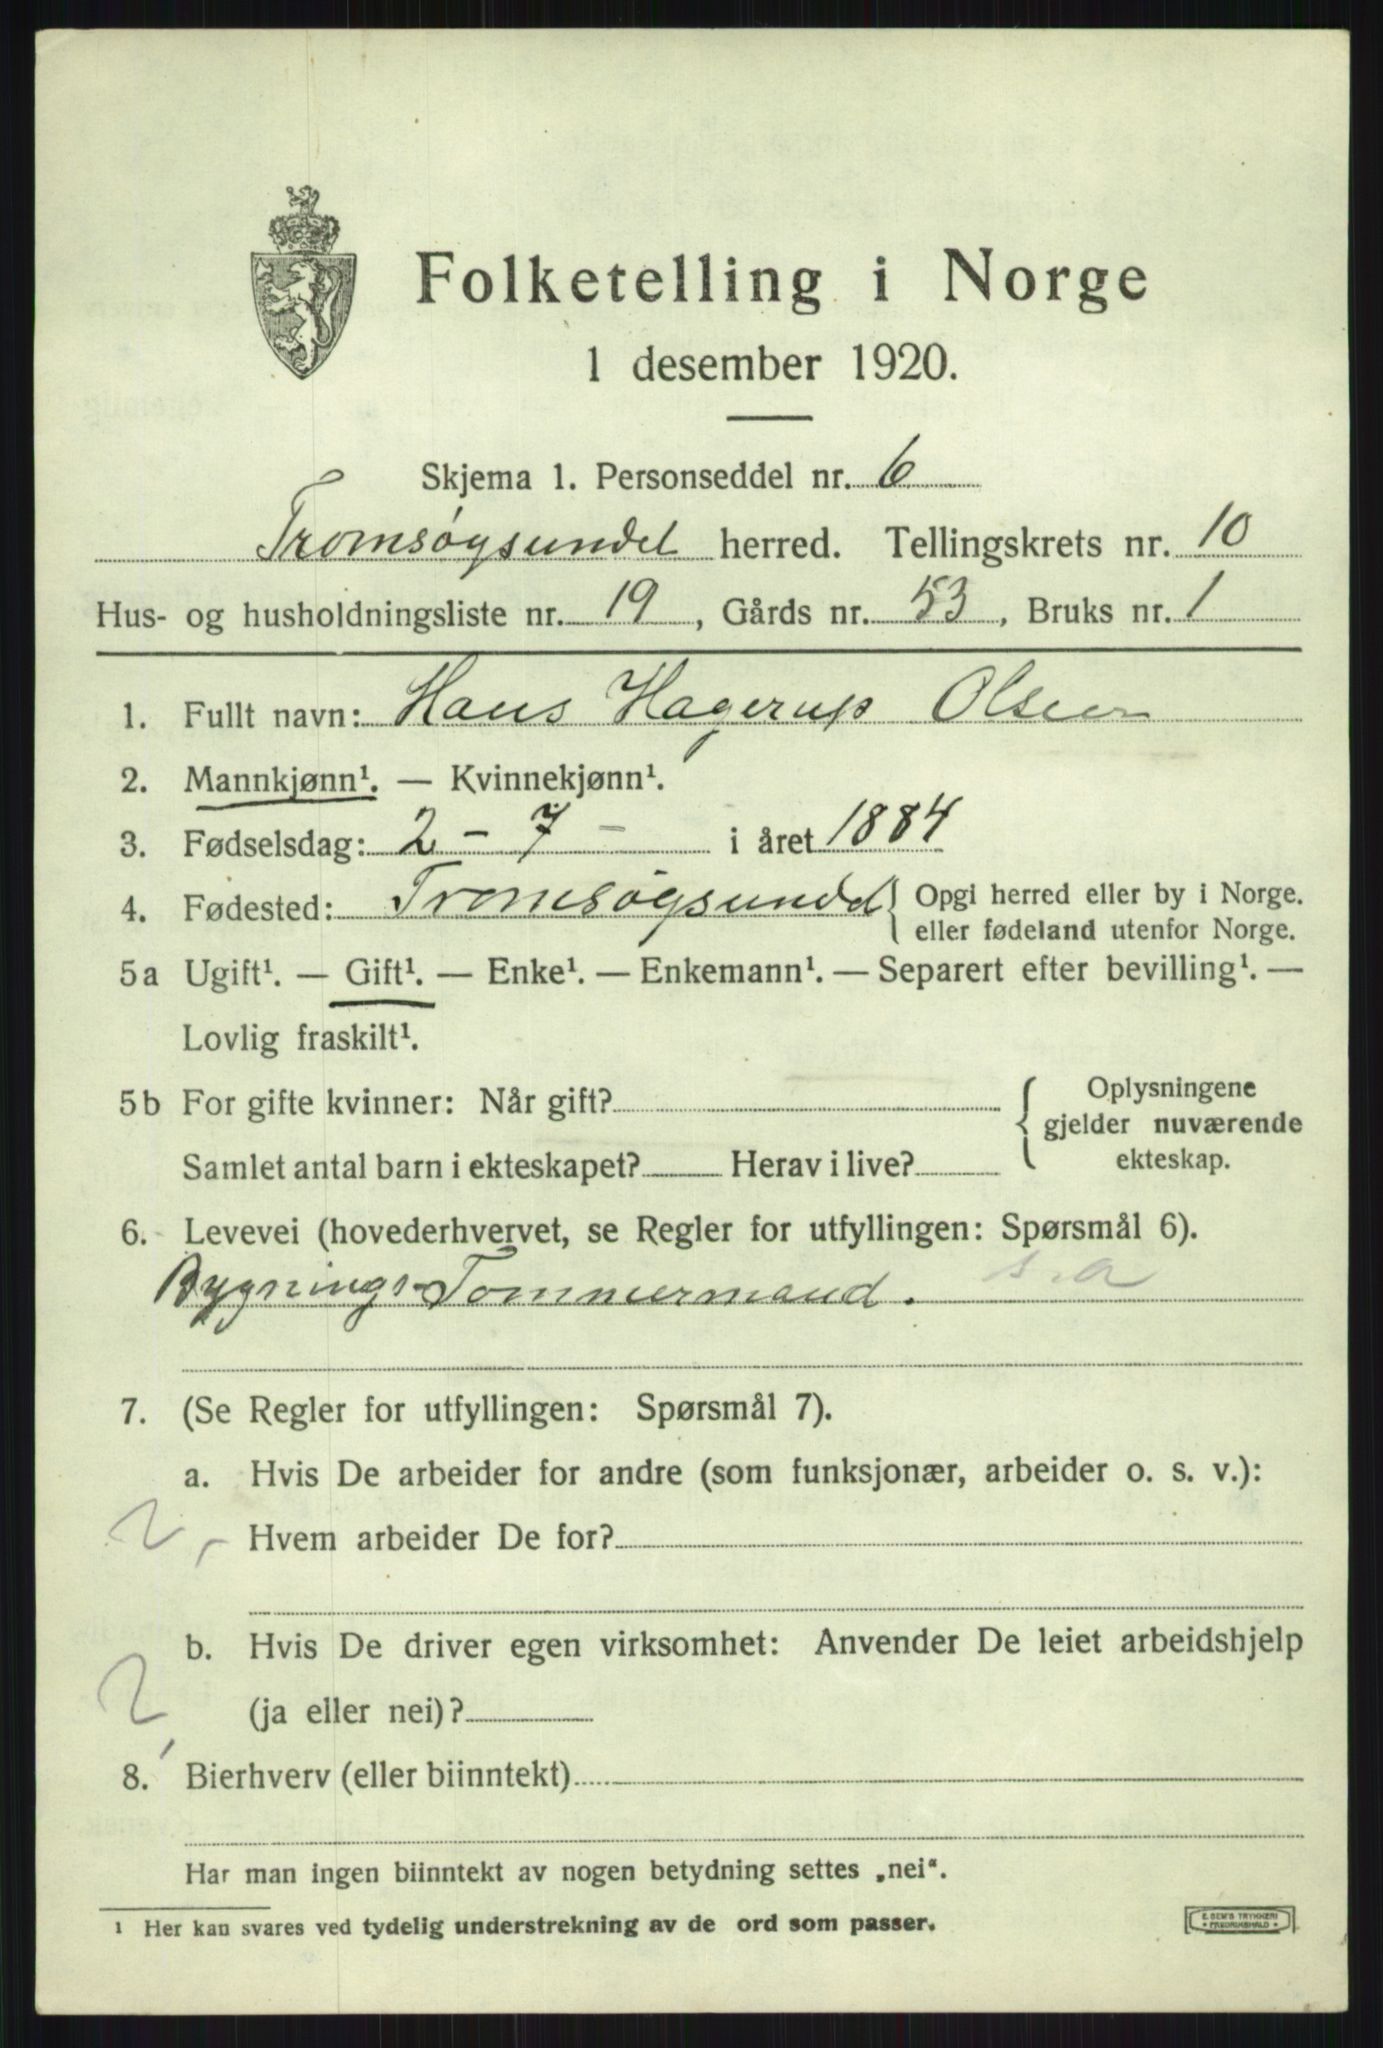 Folketelling i Norge
1 desember 1920.
Skjema 1. Personseddel nr. 6
Tromsøysundet herred. Tellingskrets nr. 10
Hus- og husholdningsliste nr. 19, Gårds nr. 53, Bruks nr. 1
1. Fullt navn: Hans Hagerup Olsen
2. Mannkjønn¹. — Kvinnekjønn¹.
3. Fødselsdag: 2 - 7 - i året 1884
4. Fødested: Tromsøysundet { Opgi herred eller by i Norge.
eller fødeland utenfor Norge.
5a Ugift¹. — Gift¹. — Enke¹. — Enkemann¹. — Separert efter bevilling¹. —
Lovlig fraskilt¹.
5b For gifte kvinner: Når gift?
Samlet antal barn i ekteskapet? Herav i live?
{ Oplysningene
gjelder nuværende
ekteskap.
6. Levevei (hovederhvervet, se Regler for utfyllingen: Spørsmål 6).
Bygnings-Tommermand. s.a
7. (Se Regler for utfyllingen: Spørsmål 7).
a. Hvis De arbeider for andre (som funksjonær, arbeider o. s. v.):
2, Hvem arbeider De for?
b. Hvis De driver egen virksomhet: Anvender De leiet arbeidshjelp
2, (ja eller nei)?
8. Bierhverv (eller biinntekt)
Har man ingen biinntekt av nogen betydning settes „nei".
¹ Her kan svares ved tydelig understrekning av de ord som passer.
E. SEM'S TRYKKERI
FREDRIKSHALD